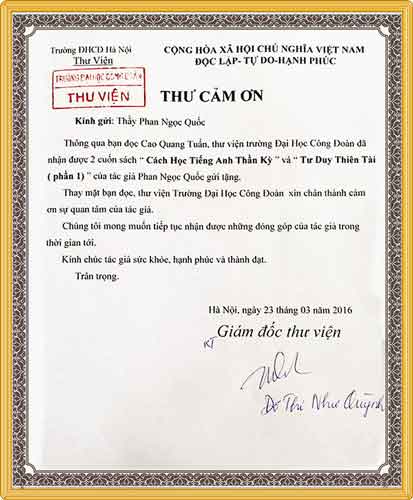 Trường ĐHCD Hà Nội
Thư Viện
CỘNG HÒA XÃ HỘI CHỦ NGHĨA VIỆT NAM
ĐỘC LẬP- TỰ DO-HẠNH PHÚC
TRƯỜNG ĐẠI HỌC CÔNG ĐOÀN
THƯ VIỆN
THƯ CẢM ƠN
Kính gửi: Thầy Phan Ngọc Quốc
Thông qua bạn đọc Cao Quang Tuấn, thư viện trường Đại Học Công Đoàn đã
nhận được 2 cuốn sách “ Cách Học Tiếng Anh Thần Kỳ ” và “ Tư Duy Thiên Tài
( phần 1) ” của tác giả Phan Ngọc Quốc gửi tặng.
Thay mặt bạn đọc, thư viện Trường Đại Học Công Đoàn xin chân thành cảm
ơn sự quan tâm của tác giả.
Chúng tôi mong muốn tiếp tục nhận được những đóng góp của tác giả trong
thời gian tới.
Kính chúc tác giả sức khỏe, hạnh phúc và thành đạt.
Trân trọng.
Hà Nội, ngày 23 tháng 03 năm 2016
KT Giám đốc thư viện
Đỗ Thị Như Quỳnh